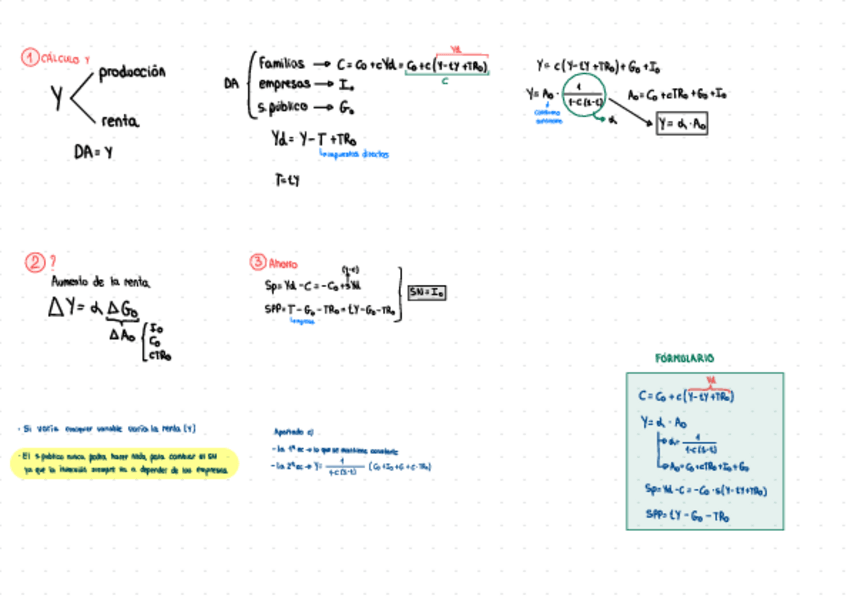 ① CÁLCULO Y
Y
producción
renta
DA = Y
DA
Familias → C = C₀ + cYd = C₀ + c(Y-tY+TR₀)
Yd
C
empresas → I₀
s.público → G₀
Yd = Y - T + TR₀
impuestos directos
T = tY
Y = c(Y-tY+TR₀) + G₀ + I₀
Y = A₀ · 1/1-c(1-t)
A₀ = C₀ + cTR₀ + G₀ + I₀
α
Y = α · A₀
② ?
Aumento de la renta
ΔY = α ΔG₀
ΔA₀
I₀
C₀
cTR₀
③ Ahorro
(1-c)
Sp = Yd - C = -C₀ + sYd
SPP = T - G₀ - TR₀ = tY - G₀ - TR₀
SN = I₀
· Si varía cualquier variable varía la renta (Y)
· El s.público nunca podrá hacer nada para cambiar el SN
ya que la inversión siempre va a depender de las empresas.
Apartado c)
- la 1ª ec → lo que se mantiene constante
- la 2ª ec → Y = 1/1-c(1-t) (C₀+I₀+G+c·TR₀)
FÓRMULARIO
Yd
C = C₀ + c(Y-tY+TR₀)
Y = α · A₀
α = 1/1-c(1-t)
A₀ = C₀ + cTR₀ + I₀ + G₀
Sp = Yd - C = -C₀ · s(Y-tY+TR₀)
SPP = tY - G₀ - TR₀